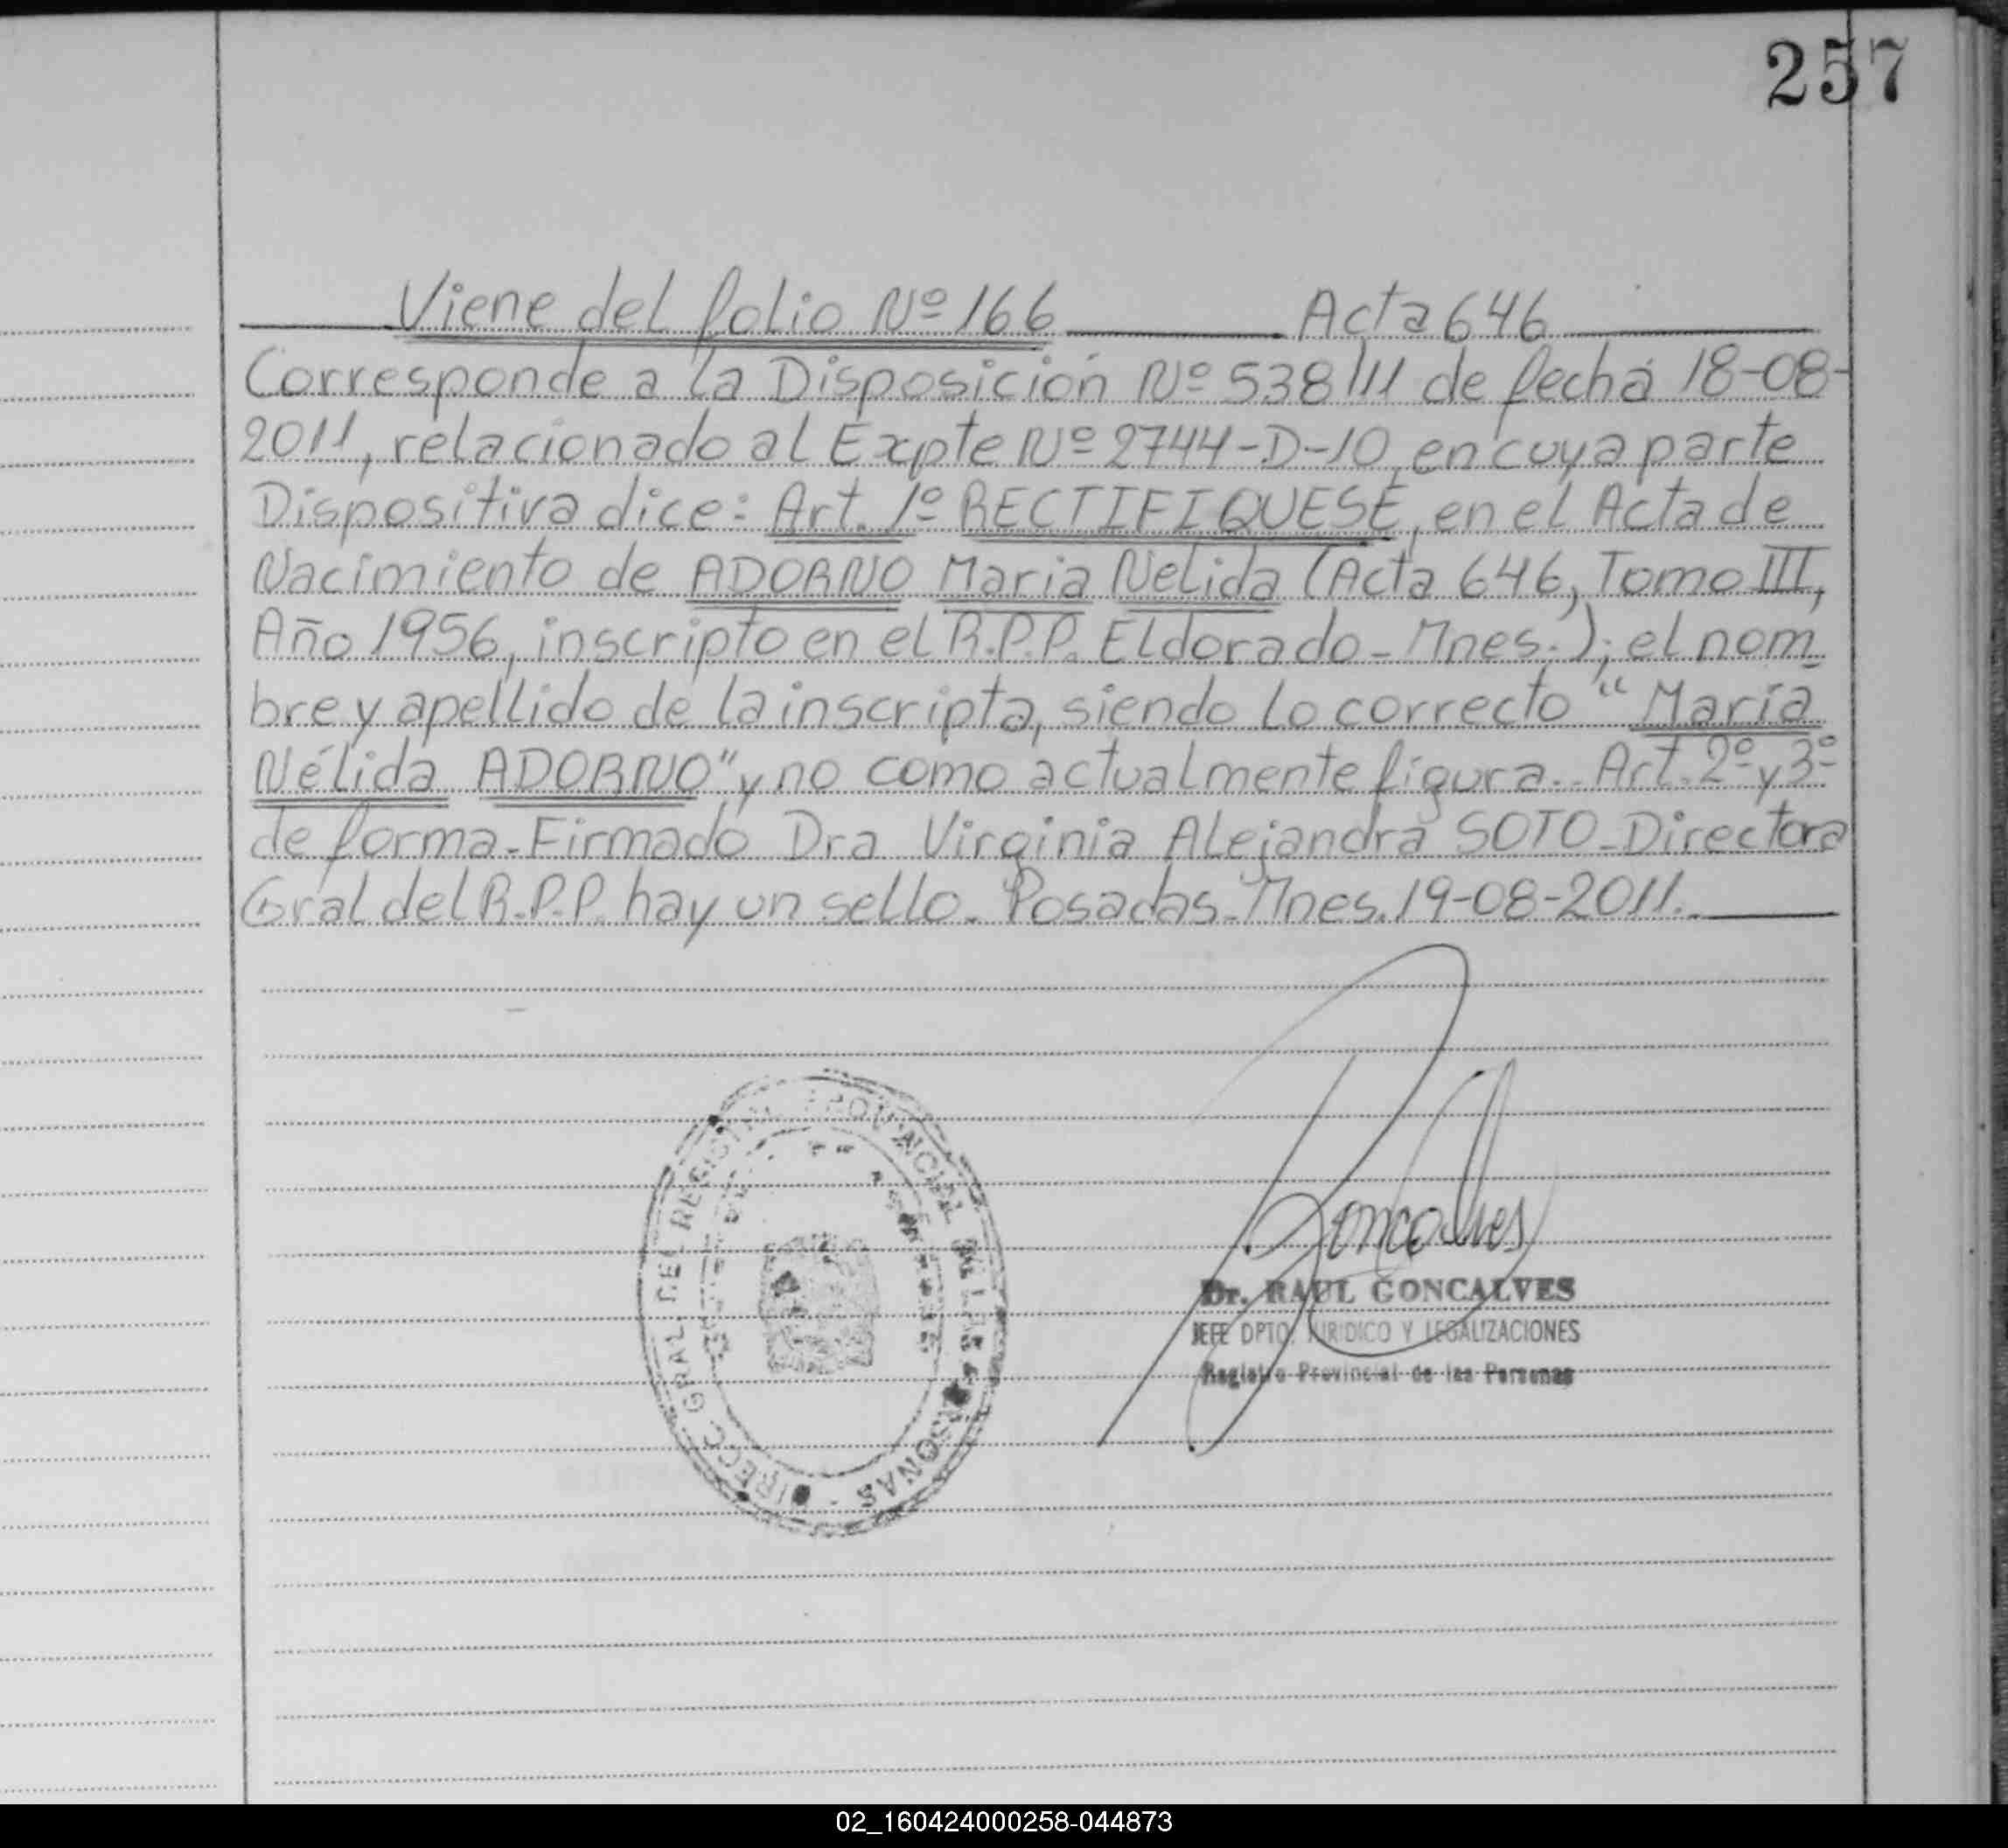 257
Viene del folio Nº 166 Acta 646
Corresponde a la Disposición Nº 538/11 de fecha 18-08-
2011, relacionado al Expte Nº 2744-D-10, en cuya parte
Dispositiva dice: Art. 1º RECTIFIQUESE, en el Acta de
Nacimiento de ADORNO Maria Nelida (Acta 646, Tomo III,
Año 1956, inscripto en el R.P.P. Eldorado - Mnes.); el nom_
bre y apellido de la inscripta, siendo lo correcto "María
Nélida ADORNO", y no como actualmente figura.. Art. 2º y 3º
de forma - Firmado Dra Virginia Alejandra SOTO - Directora
Gral del R.P.P. hay un sello. Posadas - Mnes. 19-08-2011.
DIRECC. GRAL. DEL REGISTRO PROVINCIAL DE LAS PERSONAS -
Goncalves
Dr. RAUL GONCALVES
JEFE DPTO. JURIDICO Y LEGALIZACIONES
Registro Provincial de las Personas
02_160424000258-044873